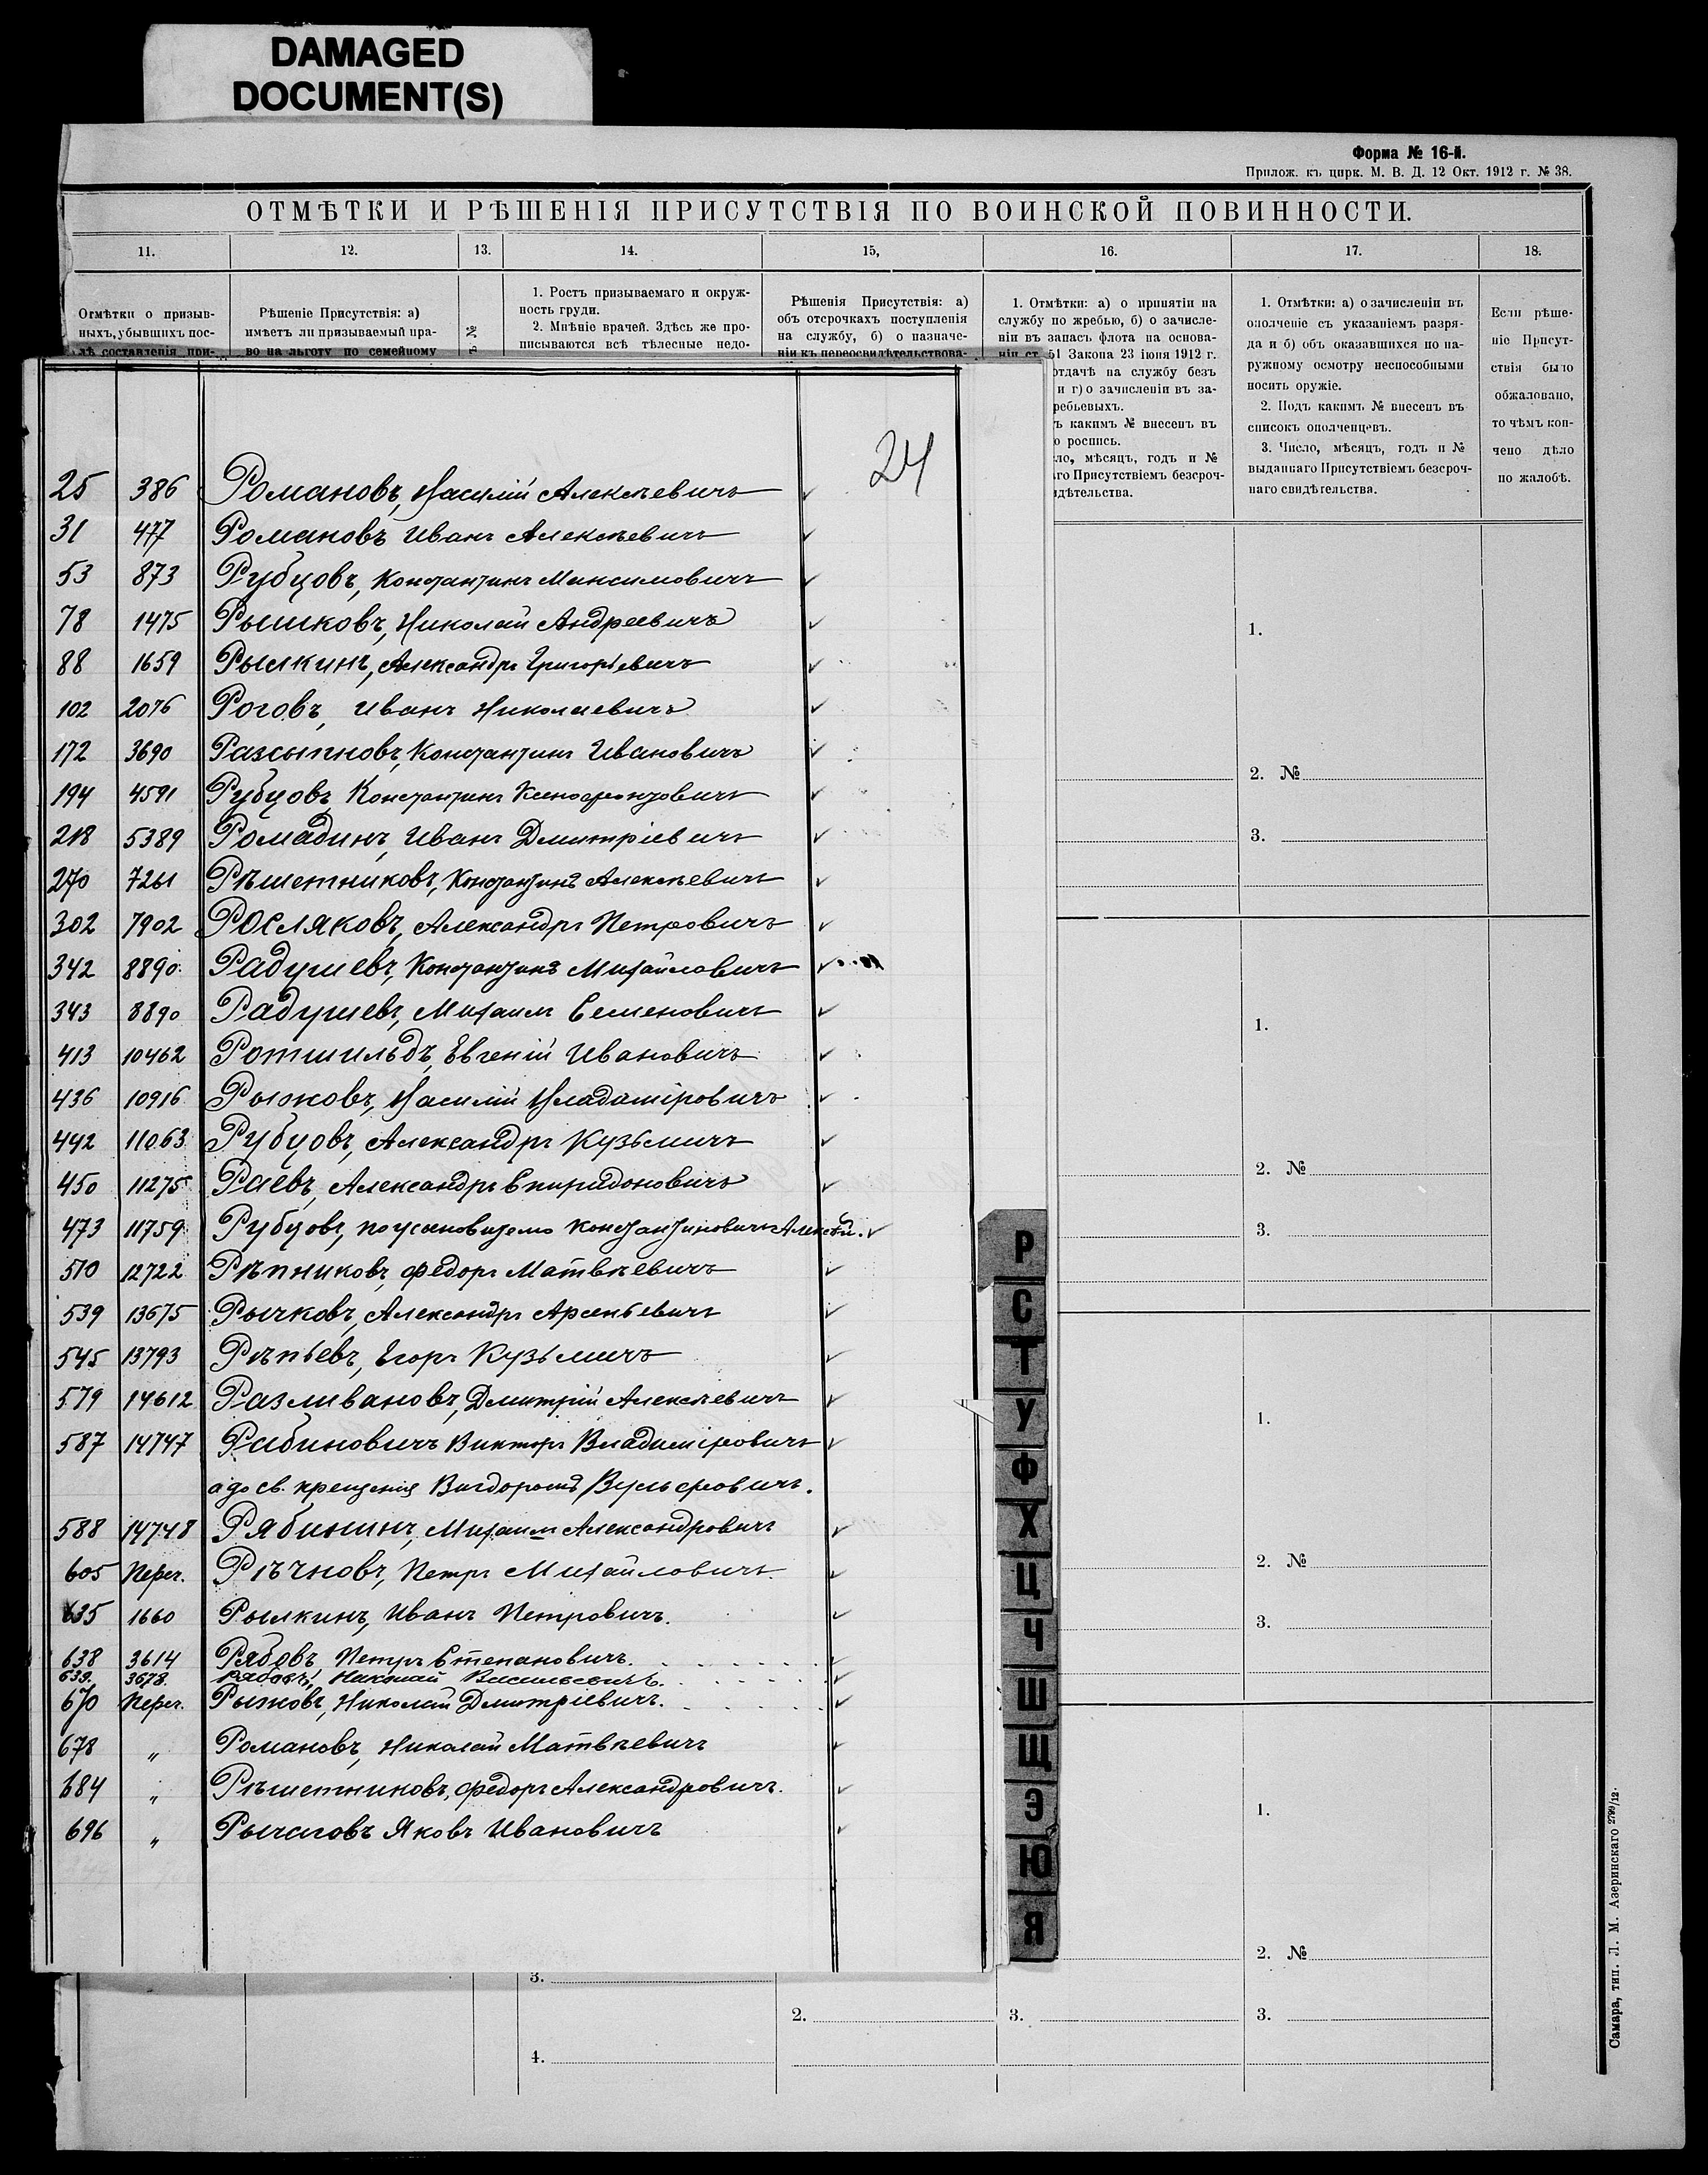 DAMAGED
DOCUMENT(S)
Форма № 16-й.
Прилож. къ цирк. М. В. Д. 12 Окт. 1912 г. № 38.
ОТМѢТКИ И РѢШЕНІЯ ПРИСУТСТВІЯ ПО ВОИНСКОЙ ПОВИННОСТИ.
11. 12. 13. 14. 15, 16. 17. 18.
Отмѣтки о призыв-
ныхъ, убывшихъ пос-
лѣ составленія при-
Рѣшеніе Присутствія: а)
имѣетъ ли призываемый пра-
во на льготу по семейному
№
1. Ростъ призываемаго и окруж-
ность груди.
2. Мнѣніе врачей. Здѣсь же про-
писываются всѣ тѣлесные недо-
Рѣшенія Присутствія: а)
объ отсрочкахъ поступленія
на службу, б) о назначе-
ніи къ переосвидѣтельствова-
1. Отмѣтки: а) о принятіи на
службу по жребью, б) о зачисле-
ніи въ запасъ флота на основа-
ніи ст. 51 Закона 23 іюня 1912 г.
отдачѣ на службу безъ
и г) о зачисленіи въ за-
ребьевыхъ.
ъ какимъ № внесенъ въ
о роспись.
ло, мѣсяцъ, годъ и №
аго Присутствіемъ безсроч-
идѣтельства.
1. Отмѣтки: а) о зачисленіи въ
ополченіе съ указаніемъ разря-
да и б) объ оказавшихся по на-
ружному осмотру неспособными
носить оружіе.
2. Подъ какимъ № внесенъ въ
списокъ ополченцевъ.
3. Число, мѣсяцъ, годъ и №
выданнаго Присутствіемъ безсроч-
наго свидѣтельства.
Если рѣше-
ніе Присут-
ствія было
обжаловано,
то чѣмъ кон-
чено дѣло
по жалобѣ.
24
25 386 Романовъ, Василій Алексѣевичъ
31 477 Романовъ Иванъ Алексѣевичъ
53 873 Рубцовъ, Константинъ Максимовичъ
78 1475 Рышковъ, Николай Андреевичъ
88 1659 Рылкинъ, Александръ Григорьевичъ
102 2076 Роговъ, Иванъ Николаевичъ
172 3690 Разсыпновъ, Константинъ Ивановичъ
194 4591 Рубцовъ, Константинъ Ксенофонтовичъ
218 5389 Ромадинъ, Иванъ Дмитріевичъ
270 7261 Рѣшетниковъ, Константинъ Алексѣевичъ
302 7902 Росляковъ, Александръ Петровичъ
342 8890 Радушевъ, Константинъ Михайловичъ
343 8890 Радушевъ, Михаилъ Семеновичъ
413 10462 Ротшильдъ, Евгеній Ивановичъ
436 10916 Рыжовъ, Василій Владиміровичъ
442 11063 Рубцовъ, Александръ Кузьмичъ
450 11275 Раевъ, Александръ Спиридоновичъ
473 11759 Рубцовъ, по усыновителю Константиновичъ Алексѣй.
510 12722 Рѣпниковъ, Федоръ Матвѣевичъ
539 13675 Рычковъ, Александръ Арсеньевичъ
545 13793 Рѣпьевъ, Егоръ Кузьмичъ
579 14612 Разливановъ, Дмитрій Алексѣевичъ
587 14747 Рабиновичъ Викторъ Владиміровичъ
а до св. крещенія Вигдоромъ Вульфовичъ.
588 14748 Рябининъ, Михаилъ Александровичъ
605 Переч. Рѣчновъ, Петръ Михайловичъ
635 1660 Рылкинъ, Иванъ Петровичъ.
638 3614 Рябовъ Петръ Степановичъ.
639. 3678. Рябовъ, Николай Васильевичъ.
670 Переч. Рыжовъ, Николай Дмитріевичъ.
678 „ Романовъ, Николай Матвѣевичъ
684 „ Рѣшетниковъ, Федоръ Александровичъ.
696 „ Рычаговъ Яковъ Ивановичъ
Р
С
Т
У
Ф
Х
Ц
Ч
Ш
Щ
Э
Ю
Я
1.
2. №
3.
1.
2. №
3.
1.
2. №
3.
1.
2. №
3.
3.
2.
3.
4.
Самара, тип. Л. М. Азеринскаго 2799/12.